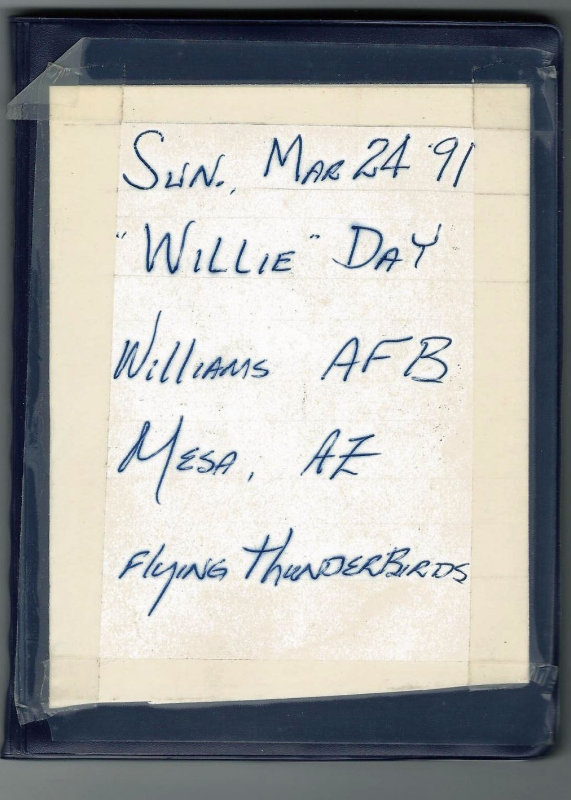 Sun., Mar 24 '91
"Willie" Day
Williams AFB
Mesa, AZ
Flying Thunderbirds